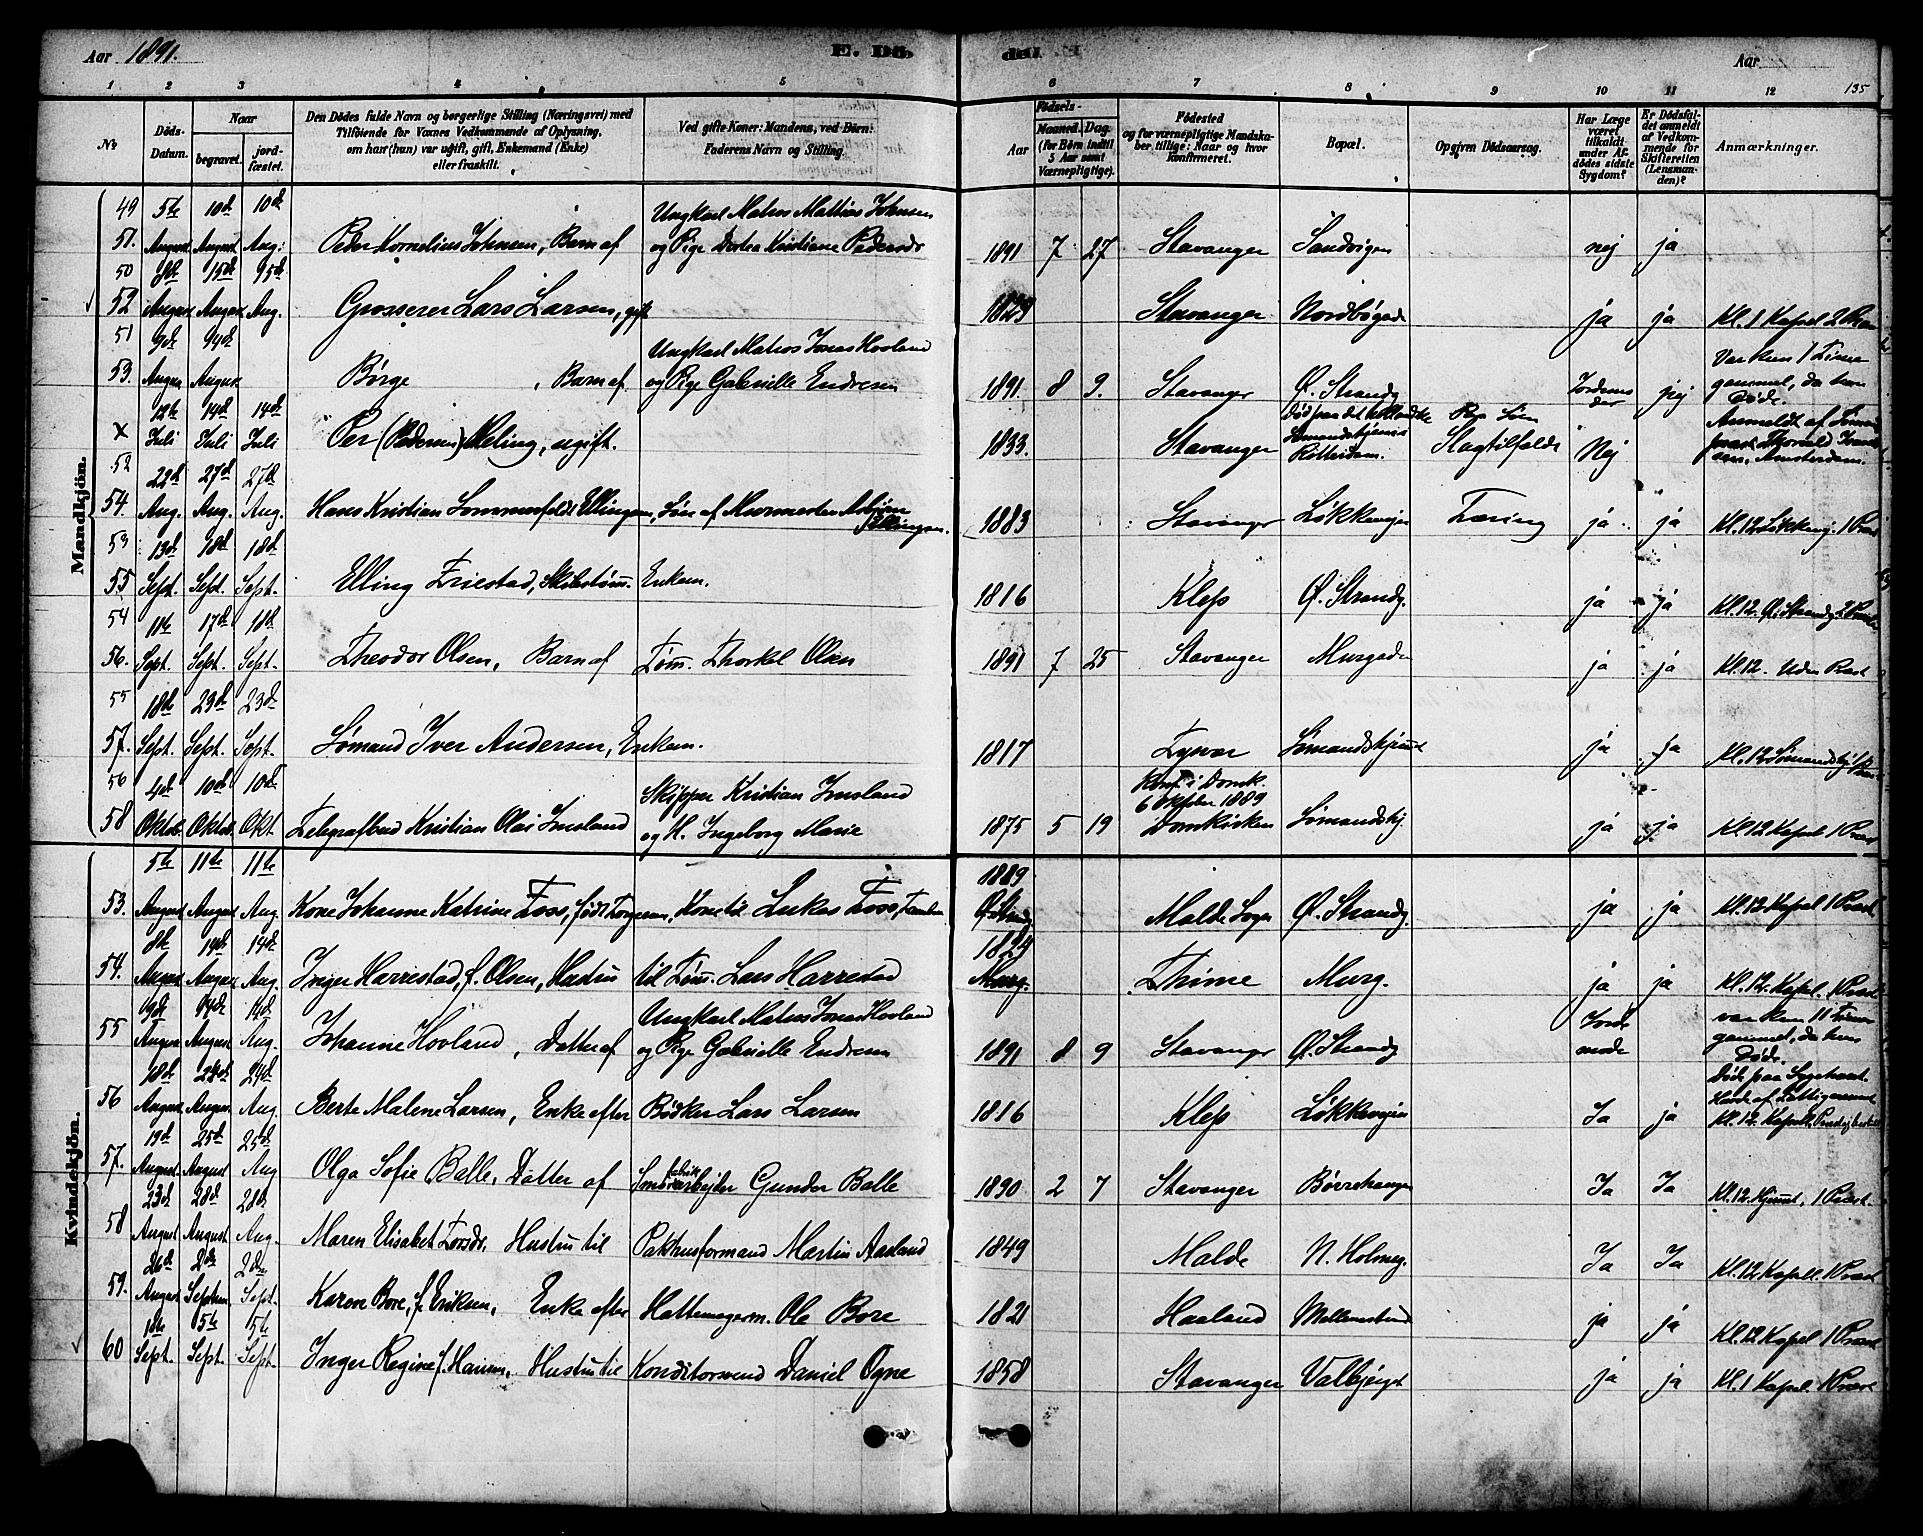 Aar 1891. E. Dö- de. Aar 135
1 2 3 4 5 6 7 8 9 10 11 12
No
Döds-Datum.
Naar
begravet.
jord-fæstet.
Den Dödes fulde Navn og borgerlige Stilling (Næringsvei) med
Tilföiende for Voxnes Vedkommende af Oplysning,
om han (hun) var ugift, gift, Enkemand (Enke)
eller fraskilt.
Ved gifte Koner: Mandens, ved Börn:
Faderens Navn og Stilling.
Födsels-
Aar
Maaned. Dag.
(for Börn indtil
5 Aar samt
Værnepligtige).
Födested
og for værnepligtige Mandska-
ber tillige: Naar og hvor
konfirmeret.
Bopæl.
Opgiven Dödsaarsag.
Har Læge
været
tilkaldt
under Af-
dödes sidste
Sygdom?
Er Dödsfal-
det anmeldt
af Vedkom-
mende for
Skifteretten
(Lensman-
den)?
Anmærkninger.
Mandkjön.
49 5te 10de 10de Ungkarl Matros Mathias Johnsen
51. August August Aug: Peder Kornelius Johnsen, Barn af og Pige Dortea Kristiane Pedersdr 1891 7 27 Stavanger Sandvigen nej ja
50 8de 15de 15de
52 August August Aug. Grosserer Lars Larsen, gift 1829 Stavanger Nordbøgade ja ja Kl. 1 Kapel 2 Præ
51 9de 14de Ungkarl Matros Jonas Hovland Var kun 1 Time
53. August August Børge , Barn af og Pige Gabrielle Endresen 1891 8 9. Stavanger Ø. Strandg nej gammel, da han Døde.
12te 14de 14de Død paa det hollandske Anmeldt af Sømands
x Juli Juli Juli Per (Pedersen) Meling, ugift. 1833. Stavanger Rotterdam. Slagtilfælde Nej præst Thorvald Amsterdam.
52 22de 27de 27de
54 Aug. Aug. Aug. Hans Kristian Sommerfeldt Ellingsen, Søn af Murmester Asbjørn Ellingsen. 1883 Stavanger Løkkeveien Tæring ja ja Kl. 12 Løkkevej. 1 Præst
53 13de 18de 18de
55 Sept. Sept. Sept. Elling Friestad, Skibstøm. Enkem. 1816 Klep Ø. Strandg. ja ja Kl. 12. Ø. Strandg. 2 Præster
54 11te 17de 18de
56. Sept. Sept. Sept. Theodor Olsen, Barn af Tøm. Thorkel Olsen 1891 7 25 Stavanger Murgaden ja ja Kl. 12. Uden Præst
55 18de 23de 23de
57. Sept. Sept. Sept. Sømand Iver Andersen, Enkem. 1817 Tysvær Sømandshjem ja Ja Kl. 12 Sømandshj. 1 Præst
56 4de 10de 10de Skipper Kristian Imsland Konf. i Domk. 6 Oktober 1889
58 Oktob. Oktob. Okt. Telegrafbud Kristian Olai Imsland og H. Ingeborg Marie 1875 5 19 Domkirken Sømandshj. ja ja Kl. 12 Kapel 1 Præst
Kvindekjön.
5te 11te 11te 1889
53. August August Aug. Kone Johanne Katrine Foss, født Torgersen, Kone til Lukas Foss, Ø. Strandg Malde Sogn Ø. Strandg. ja ja Kl. 12 Kapel 1 Præst
8de 14de 14de 1829
54. August August Aug. Inger Harrestad, f. Olsen, Hustru til Tøm. Lars Harrestad Murg. Thime Murg. ja ja Kl. 12. Kapel. 1 Præst
9de 14de 14de Ungkarl Matros Jonas Hovland var kun 11 Timer
55 August August Aug. Johanne Hovland, Datter af og Pige Gabrielle Endresen 1891 8 9 Stavanger Ø. Strandg Jordemoder gammel, da hun Døde.
18de 24de 24de Døde paa Sygehuset.
56 August August Aug. Berte Malene Larsen, Enke efter Bødker Lars Larsen 1816 Klep Løkkeveien Ja ja Kl. 12. Kapel.
19de 25de 25de
57. August August Aug Olga Sofie Balle, Datter af Smørfabrikarbejder Gunder Balle 1890 2 7 Stavanger Børrehaugen Ja Ja Kl. 12. Hjemmet, 1 Præst.
23de 28de 28de
58 August August Aug. Maren Elisabet Torsdr, Hustru til Pakhusformand Martin Aasland 1849 Malde N. Holmeg. Ja Ja Kl. 12 Kapel. 1 Præst
26de 2den 2den
59. August Septem. Sept. Karen Bore, f. Eriksen, Enke efter Hattemagerm. Ole Bore 1821 Haaland Mellemstræde ja ja Kl. 12 Kapel 1 Præst
1ste 5te 5te
60 Sept. Sept. Sept. Inger Regine f. Hansen, Hustru til Konditorsvend Daniel Ogne 1858 Stavanger Valbjergt ja ja Kl. 1 Kapel. 1 Præst